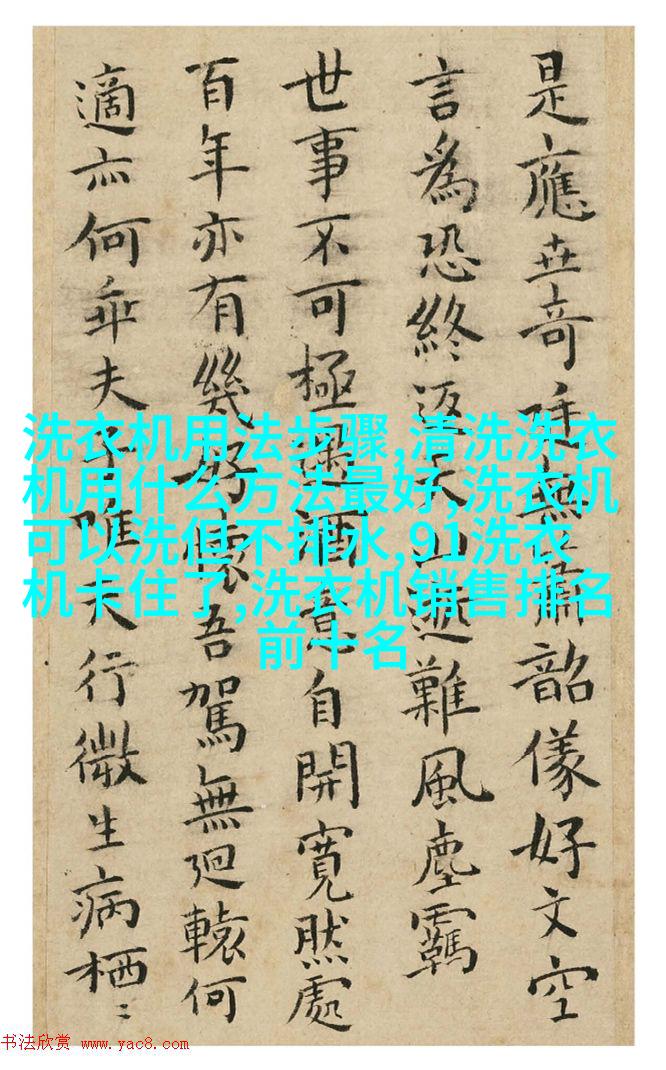 是應世奇無韶儀好文空
言為恐終返山難風塵羈
世事不可極遇酒意自開寬然處
百年亦有幾好懷吾駕無迴轅何
適亦何乖夫子夫行微生病栖〻
洗衣机用法步骤,清洗洗衣
机用什么方法最好,洗衣机
可以洗但不排水,91洗衣
机卡住了,洗衣机销售排名
前十名
书法欣赏 www.yac8.com